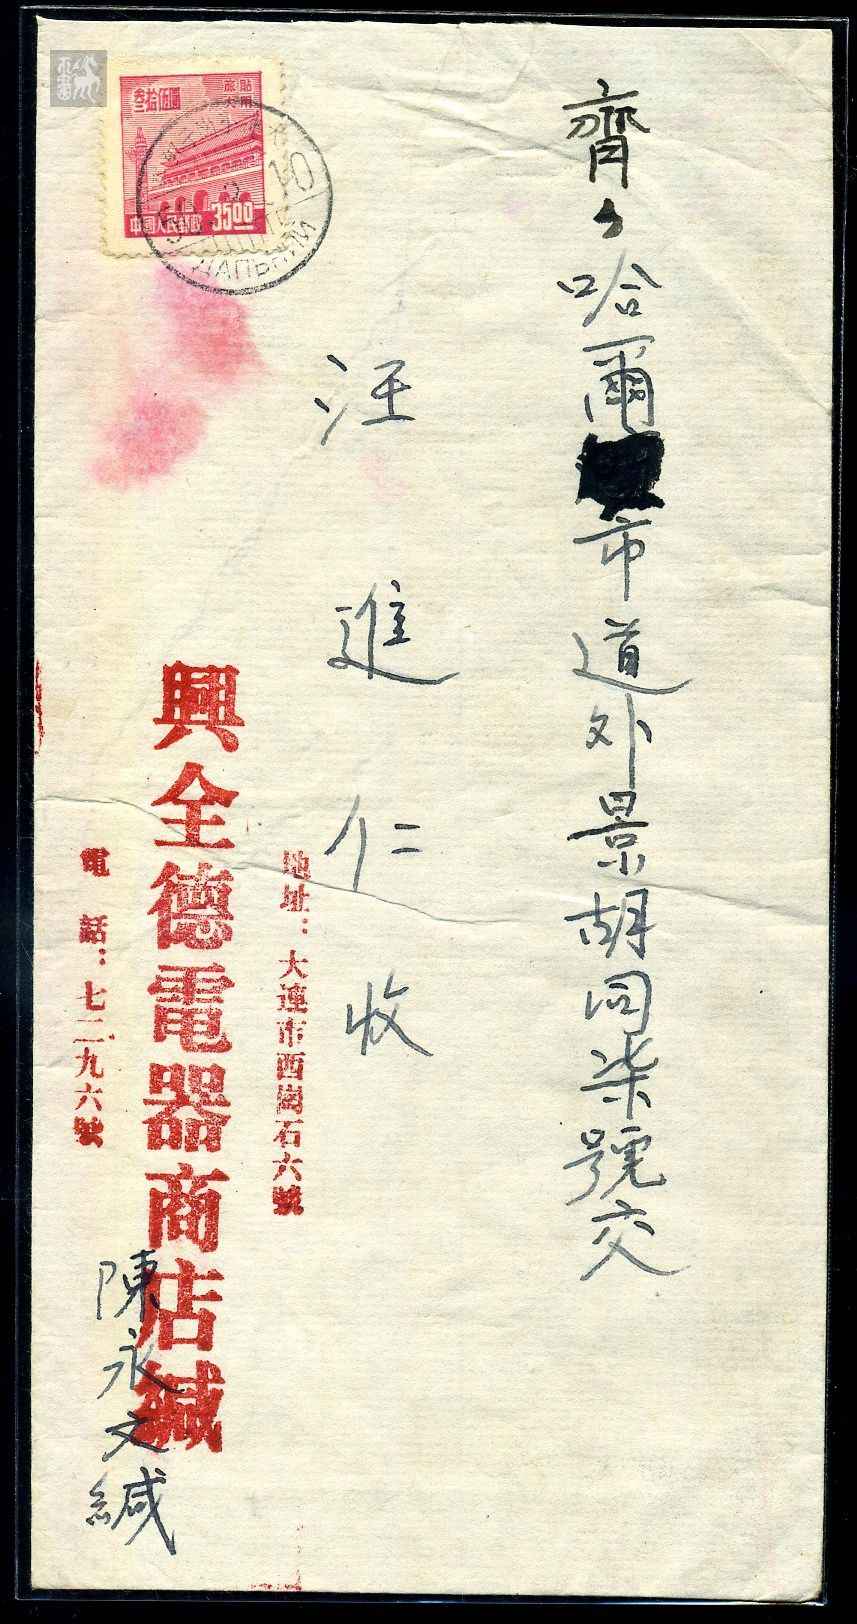 齊々哈爾市道外景胡同柒號交
汪進仁收
地址：大連市西崗石六號
興全德電器商店緘
電話：七二九六號
陳永文緘
叁拾伍圓
旅大
貼用
中國人民郵政
3500
10